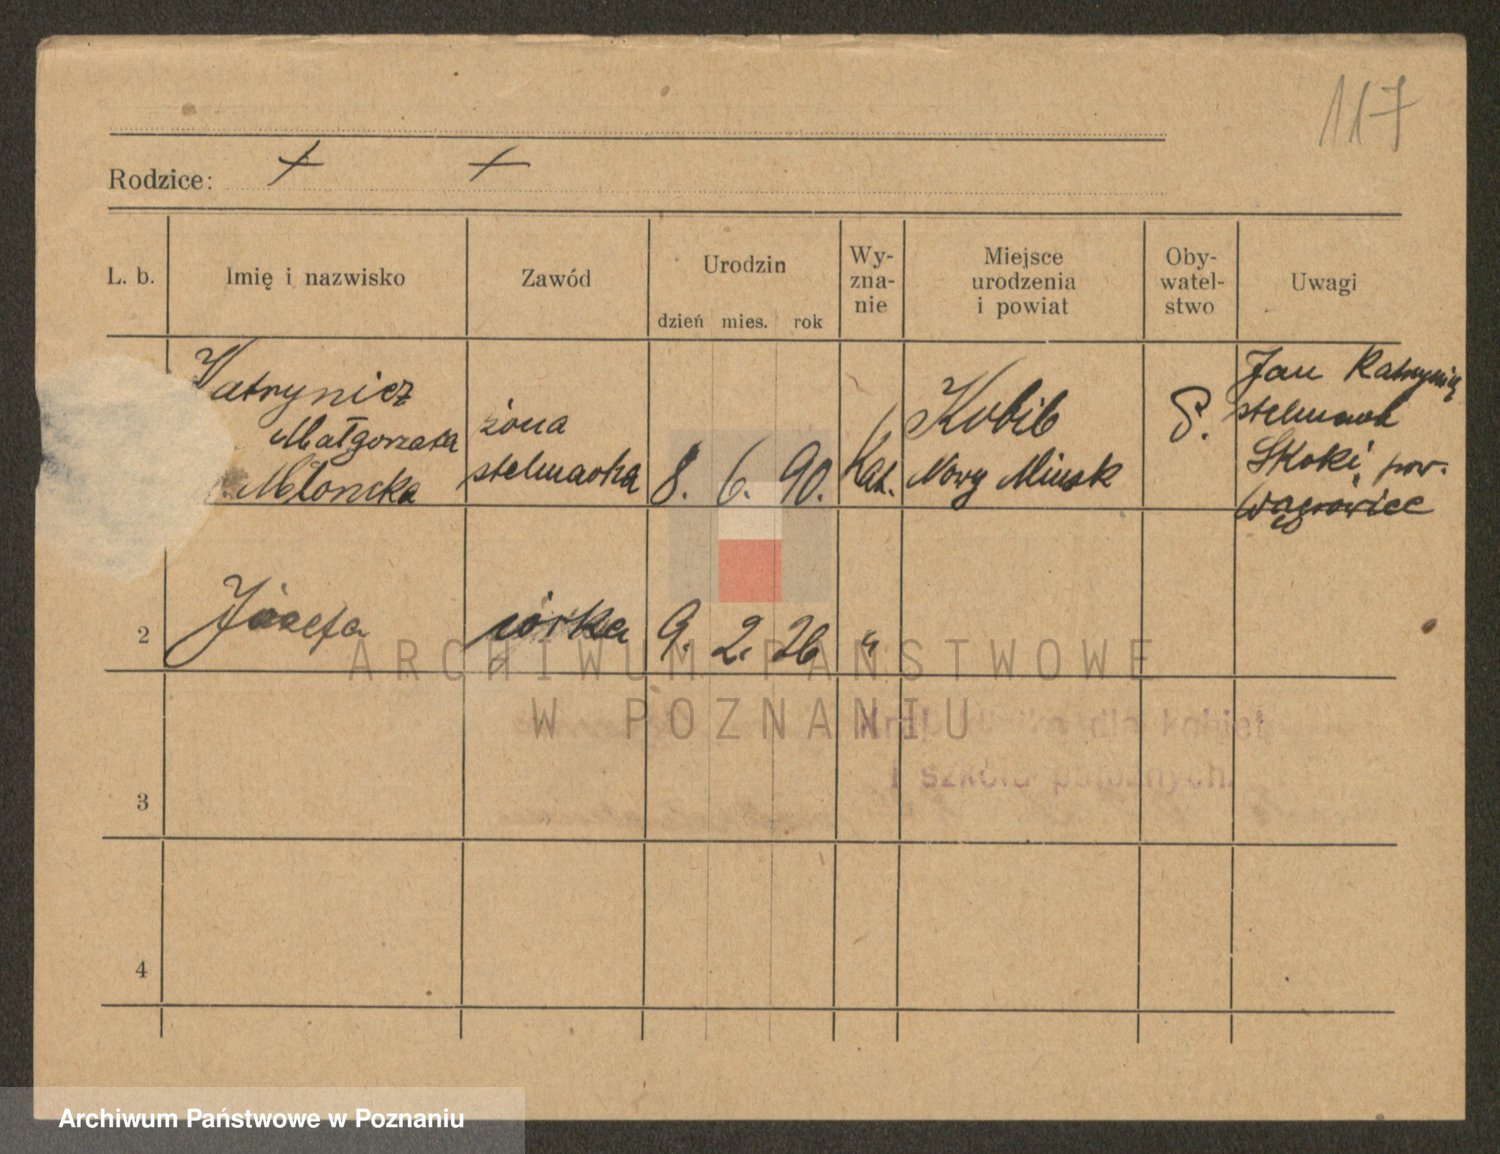 117
Rodzice:
L. b.
Imię i nazwisko
Zawód
Urodzin
dzień mies. rok
Wy-
zna-
nie
Miejsce
urodzenia
i powiat
Oby-
watel-
stwo
Uwagi
Katrynicz
Małgorzata
żona
stelmacha
8. 6. 90.
Kat.
Kobib
Nowy Minsk
P.
Jan Katrynicz
stelmach
Skoki, pow.
Wągrowiec
2
Józefa
córka
9. 2. 26
"
ARCHIWUM PAŃSTWOWE
W POZNANIU
dla kobiet
i szkoła położnych.
3
4
Archiwum Państwowe w Poznaniu